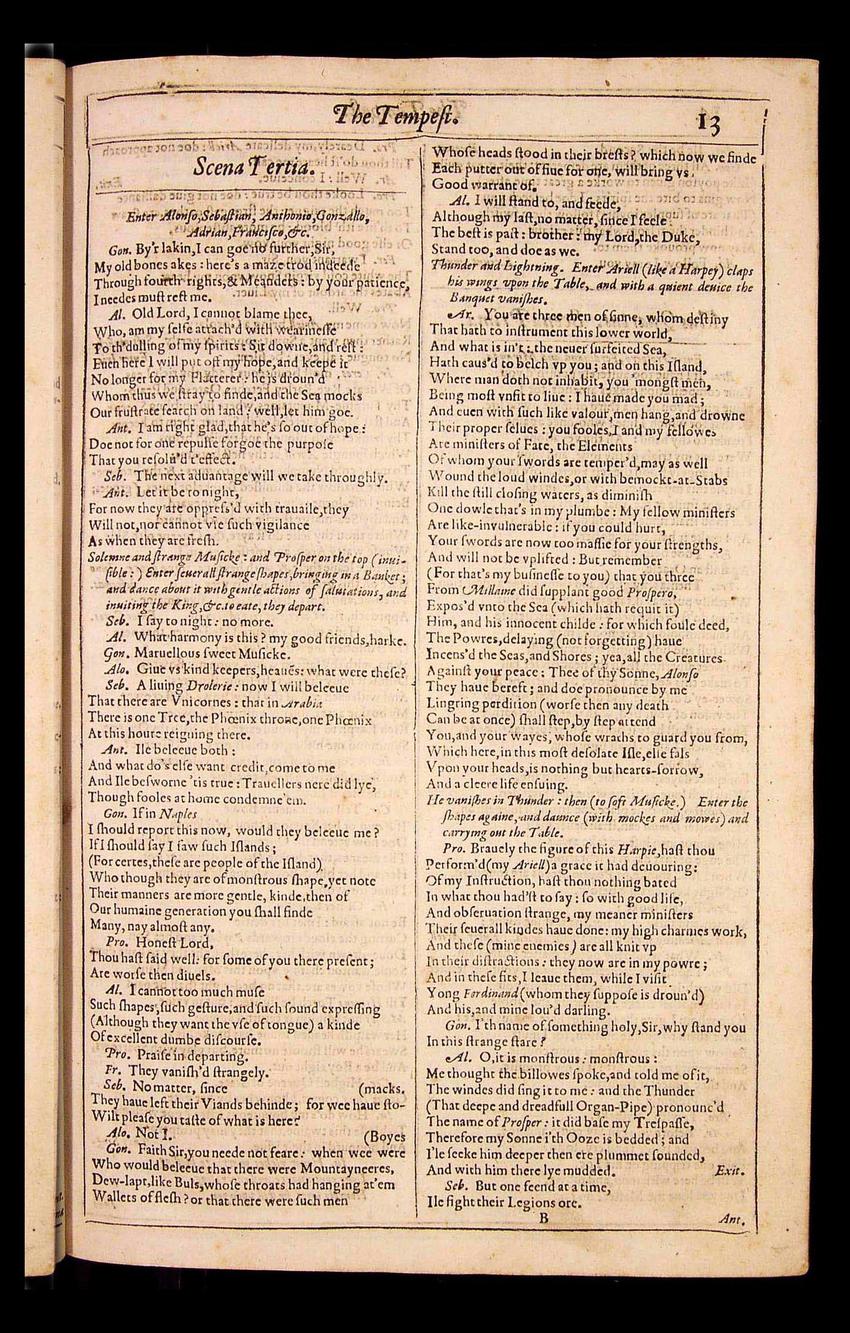 The Tempest.
13
Scena Tertia.
Enter Alonso, Sebastian, Anthonio, Gonzallo,
Adrian, Francisco, &c.
Gon. By'r lakin, I can goe no further, Sir,
My old bones akes: here's a maze trod indeede
Through fourth rights, & Meanders: by your patience,
I needes must rest me.
Al. Old Lord, I cannot blame thee,
Who, am my selfe attach'd with wearinesse
To th'dulling of my spirits: Sit downe, and rest:
Euen here I will put off my hope, and keepe it
No longer for my Flatterer: he is droun'd
Whom thus we stray to finde, and the Sea mocks
Our frustrate search on land: well, let him goe.
Ant. I am right glad, that he's so out of hope:
Doe not for one repulse forgoe the purpose
That you resolu'd t'effect.
Seb. The next aduantage will we take throughly.
Ant. Let it be to night,
For now they are oppress'd with trauaile, they
Will not, nor cannot vse such vigilance
As when they are fresh.
Solemne and strange Musicke: and Prosper on the top (inui-
sible:) Enter seuerall strange shapes, bringing in a Banket;
and dance about it with gentle actions of salutations, and
inuiting the King, &c. to eate, they depart.
Seb. I say to night: no more.
Al. What harmony is this? my good friends, harke.
Gon. Maruellous sweet Musicke.
Alo. Giue vs kind keepers, heauēs: what were these?
Seb. A liuing Drolerie: now I will beleeue
That there are Vnicornes: that in Arabia
There is one Tree, the Phœnix throne, one Phœnix
At this houre reigning there.
Ant. Ile beleeue both:
And what do's else want credit, come to me
And Ile besworne 'tis true: Trauellers nere did lye,
Though fooles at home condemne 'em.
Gon. If in Naples
I should report this now, would they beleeue me?
If I should say I saw such Islands;
(For certes, these are people of the Island)
Who though they are of monstrous shape, yet note
Their manners are more gentle, kinde, then of
Our humaine generation you shall finde
Many, nay almost any.
Pro. Honest Lord,
Thou hast said well: for some of you there present;
Are worse then diuels.
Al. I cannot too much muse
Such shapes, such gesture, and such sound expressing
(Although they want the vse of tongue) a kinde
Of excellent dumbe discourse.
Pro. Praise in departing.
Fr. They vanish'd strangely.
Seb. No matter, since (macks.
They haue left their Viands behinde; for wee haue sto-
Wilt please you taste of what is here?
Alo. Not I. (Boyes
Gon. Faith Sir, you neede not feare: when wee were
Who would beleeue that there were Mountayneeres,
Dew-lapt, like Buls, whose throats had hanging at'em
Wallets of flesh? or that there were such men
Whose heads stood in their brests? which now we finde
Each putter out of fiue for one, will bring vs
Good warrant of.
Al. I will stand to, and feede,
Although my last, no matter, since I feele
The best is past: brother: my Lord, the Duke,
Stand too, and doe as we.
Thunder and Lightning. Enter Ariell (like a Harpey) claps
his wings vpon the Table, and with a quient deuice the
Banquet vanishes.
Ar. You are three men of sinne, whom destiny
That hath to instrument this lower world,
And what is in't: the neuer surfeited Sea,
Hath caus'd to belch vp you; and on this Island,
Where man doth not inhabit, you 'mongst men,
Being most vnfit to liue: I haue made you mad;
And euen with such like valour, men hang, and drowne
Their proper selues: you fooles, I and my fellowes
Are ministers of Fate, the Elements
Of whom your swords are temper'd, may as well
Wound the loud windes, or with bemockt-at-Stabs
Kill the still closing waters, as diminish
One dowle that's in my plumbe: My fellow ministers
Are like-invulnerable: if you could hurt,
Your swords are now too massie for your strengths,
And will not be vplifted: But remember
(For that's my businesse to you) that you three
From Millaine did supplant good Prospero,
Expos'd vnto the Sea (which hath requit it)
Him, and his innocent childe: for which foule deed,
The Powres, delaying (not forgetting) haue
Incens'd the Seas, and Shores; yea, all the Creatures
Against your peace: Thee of thy Sonne, Alonso
They haue bereft; and doe pronounce by me
Lingring perdition (worse then any death
Can be at once) shall step, by step attend
You, and your wayes, whose wraths to guard you from,
Which here, in this most desolate Isle, else fals
Vpon your heads, is nothing but hearts-sorrow,
And a cleere life ensuing.
He vanishes in Thunder: then (to soft Musicke.) Enter the
shapes againe, and daunce (with mockes and mowes) and
carrying out the Table.
Pro. Brauely the figure of this Harpie, hast thou
Perform'd (my Ariell) a grace it had deuouring:
Of my Instruction, hast thou nothing bated
In what thou had'st to say: so with good life,
And obseruation strange, my meaner ministers
Their seuerall kindes haue done: my high charmes work,
And these (mine enemies) are all knit vp
In their distractions: they now are in my powre;
And in these fits, I leaue them, while I visit
Yong Ferdinand (whom they suppose is droun'd)
And his, and mine lou'd darling.
Gon. I'th name of something holy, Sir, why stand you
In this strange stare?
Al. O, it is monstrous: monstrous:
Me thought the billowes spoke, and told me of it,
The windes did sing it to me: and the Thunder
(That deepe and dreadfull Organ-Pipe) pronounc'd
The name of Prosper: it did base my Trespasse,
Therefore my Sonne i'th Ooze is bedded; and
I'le seeke him deeper then ere plummet sounded,
And with him there lye mudded. Exit.
Seb. But one feend at a time,
Ile fight their Legions ore.
B Ant.